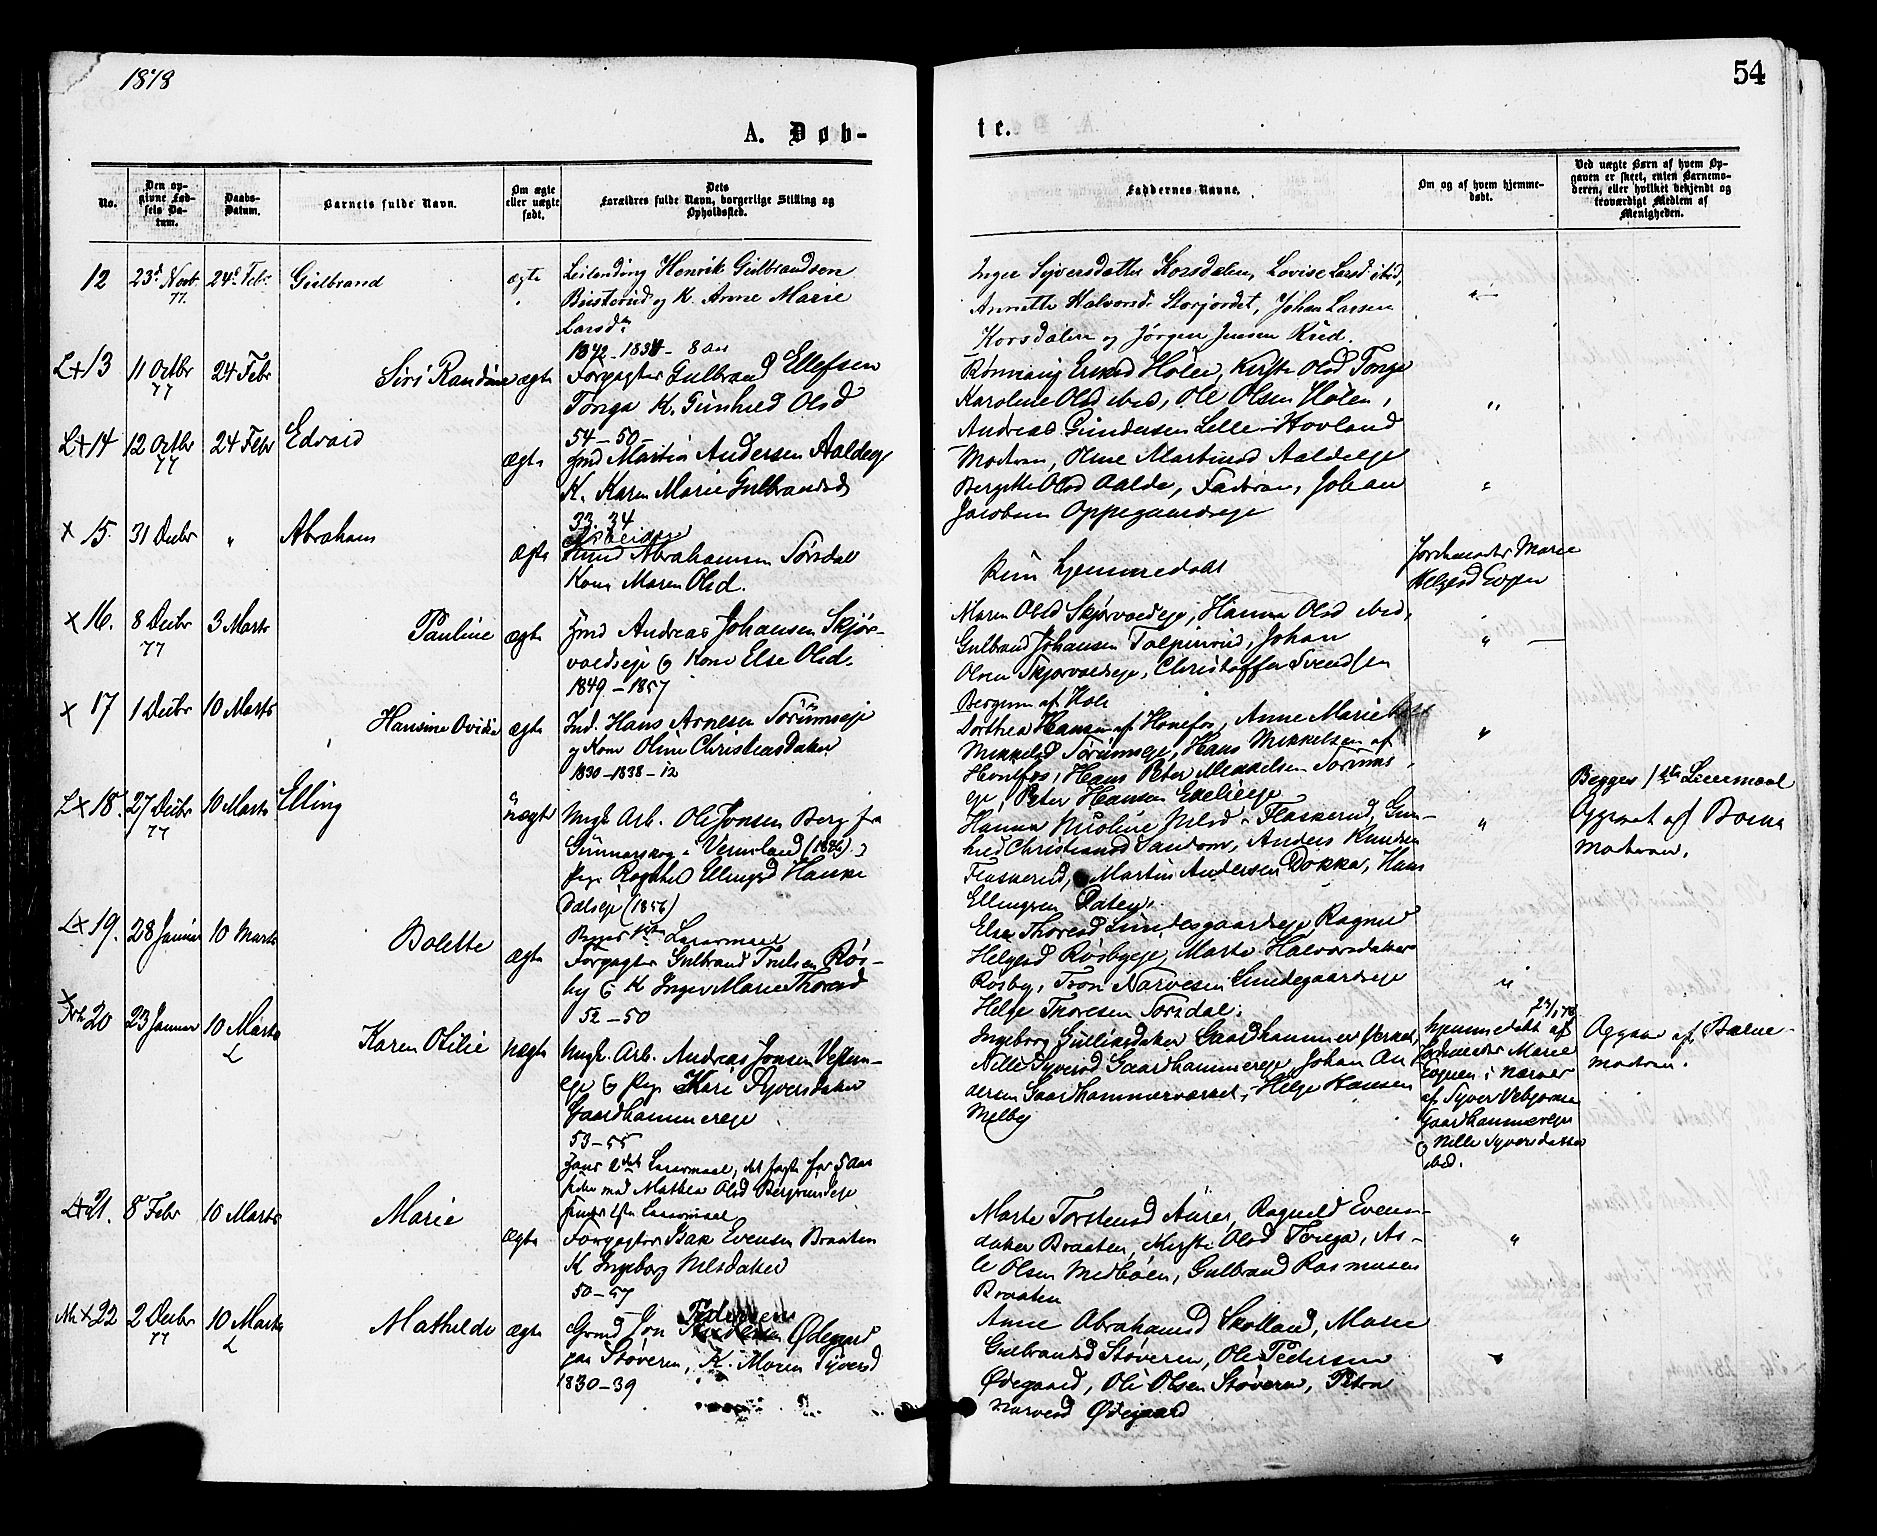 1878
54
A. Døb-
te.
No.
Den op-
givne Fød-
sels Da-
tum.
Daabs-
Datum.
Barnets fulde Navn.
Om ægte
eller uægte
født.
Dets
Forældres fulde Navn, borgerlige Stilling og
Opholdssted.
Faddernes Navne.
Om og af hvem hjemme-
døbt.
Ved uægte Børn af hvem Op-
gaven er skeet, enten Barnemo-
deren, eller hvilket bekjendt og
troværdigt Medlem af
Menigheden.
12 23d Novb. 77. 24d Febr. Gulbrand ægte
Henrik Gulbrandsen
og K. Anne Marie
Larsdr
Inger Syversdatter Korsdalen, Lovise Larsd ibid,
Annette Halvorsd. Storjordet, Johan Larsen
Korsdalen og Jørgen Jensen Rud.
L+13 11 Octbr 77 24 Febr Siri Randine ægte
1842-1834- 8 Aar
Forpagter Gulbrand Ellefsen
Tonga K. Gunhild Olsd
Rønnaug Høle, Kirsti Olsd Tonga
Karoline Olsd ibid, Ole Olsen Hølen,
Andreas Gundersen Lille-Hovland
L+14 12 Octbr 77 24 Febr Edvard ægte
54-50-
Jnd Martin Andersen Aaldeeje
K. Karen Marie Gulbrandsd
Modran, Oline Martinsd Aaldeeje
Olsd Aalde, Fadran, Johan
Jacobsen Oppegaardseje
x 15. 31 Decbr " Abraham ægte
33-34
Arbeider
Knud Abrahamsen Tørsdal
Kone Maren Olsd.
Kun hjemmedøbt
Jordmoder Marie
Helgesd Evjen
x 16. 8 Decbr 77 3 Marts Pauline ægte
Jnd Andreas Johansen Skjør-
voldseje & Kone Else Olsd.
1849-1857
Maren Olsd Skjørvoldeje, Hanna Olsd ibid,
Gulbrand Johansen Tolpinrud, Johan
Olsen Skjørvoldeje, Christoffer Svendsen
Bergerun af Hole
x 17 1 Decbr 10 Marts Hansine Ovidia ægte
Ind. Hans Arnesen Tørumseje
og Kone Oline Christiansdatter
1830-1838-12
Dorthea Hansen af Hønefos, Anne Marie
Mikkelsd Tørumseje, Hans Mikkelsen af
Hønefos, Hans Peter Mikkelsen Tørums-
eje, Peter Hansen
L+18. 27 Decbr 77 10 Marts Elling uægte
Ungk. Arb. Ole Jonsen Berg fra
Gunnarskog i Vermland (1846)
Pige Ragnhild Ellingsd Hanke
Dalseje (1856)
Begges 1ste Leiermaal
Hanna Nicoline Nilsd Flaskerud, Gun-
hild Christiansd Sandom, Anders Knudsen
Flaskerud, Martin Andersen Dokka, Hans
Ellingsen
Begges 1ste Leiermaal
Opgivet af Barne
modren.
L+19. 28 Januar 10 Marts Bolette ægte
Forpagter Gulbrand Truelsen Røs-
by & K Inger Marie Thoresd
52-50
Else Thoresd Lundesgaardseje Ragnild
Helgesd Røsbyeje, Marte Halvorsdatter
Røsby, Tron Narvesen Lundegaardseje
Helge Thoresen Tørsdal.
20 23 Januar 10 Marts L Karen Otilie uægte
Ungk. Arb. Andreas Jonsen
eje & Pige Kari Syversdatter
Gaardhammereje
53-55
Hans 2det Leiermaal, det første for 5 Aar
siden med Mathea Olsd
hendes 1ste Leiermaal
Ingeborg Gulliksdatter Gaardhammer Verket,
Nelle Syversd Gaardhammereje, Johan An
dersen Gaardhammerværket, Helge Hansen
Melby
hjemmedøbt af
Jordmoder Marie
Evjen i Nærvær
af Syver Vebjørnsen
Gaardhammereje
& Nille Syversdatter
ibid.
Opgave af Barne-
modren.
L+21. 8 Febr 10 Marts Marie ægte
Forpagter Evensen Braaten
K Ingeborg Nilsdatter
50-57
Marte Torstensd Ragnild Evens-
datter Braaten, Kirsti Olsd Tonga, As-
le Olsen Medbøen, Gulbrand Rasmusen
Braaten
22 2 Decbr 77 10 Marts L Mathilde ægte
Gmd Jon Pedersen Ødegaard
paa Støveren, K. Maren Syversd
1830-39
Anne Abrahamsd Skolland, Marie
Gulbrandsd Støveren, Ole Pedersen
Ødegaard, Ole Olsen Støvern, Petra
Narvesd Ødegaard